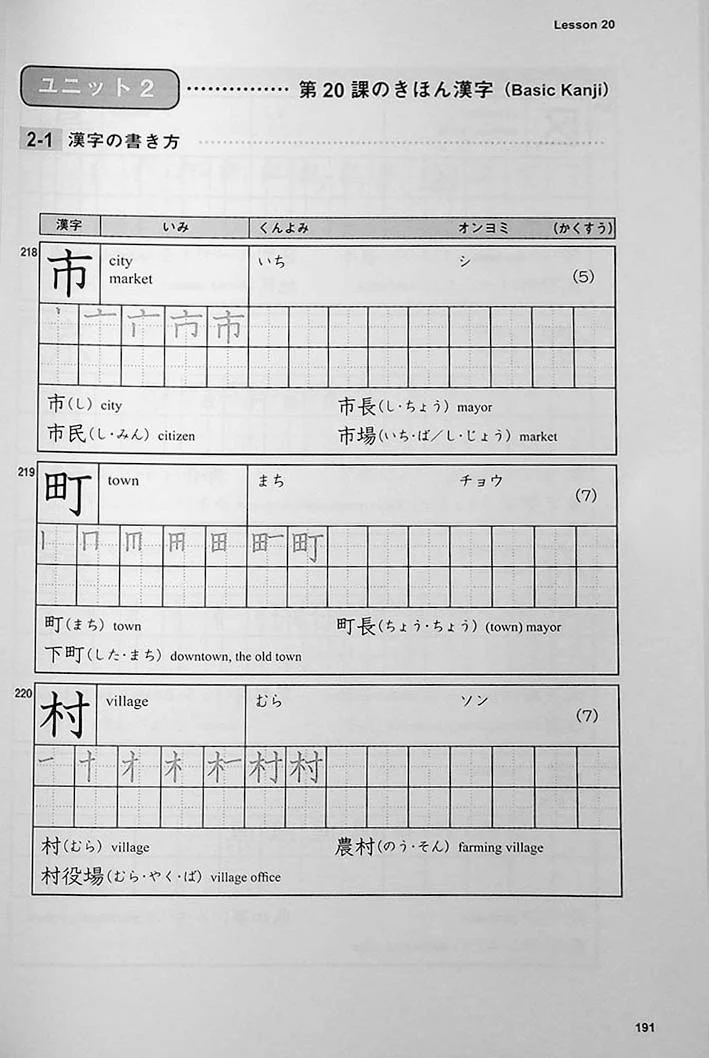 Lesson 20
ユニット2 ··············· 第20課のきほん漢字 (Basic Kanji)
2-1 漢字の書き方
漢字 いみ くんよみ オンヨミ (かくすう)
218 市 city いち シ (5)
market
丶 亠 亣 市 市
市(し) city 市長(し·ちょう) mayor
市民(し·みん) citizen 市場(いち·ば/し·じょう) market
219 町 town まち チョウ (7)
町(まち) town 町長(ちょう·ちょう) (town) mayor
下町(した·まち) downtown, the old town
220 村 village むら ソン (7)
村(むら) village 農村(のう·そん) farming village
村役場(むら·やく·ば) village office
191